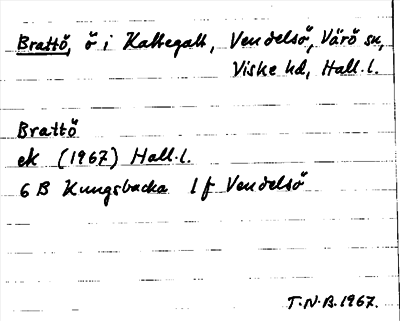 Brattö, ö i Kattegatt, Vendelsö, Värö sn,
Viske hd, Hall. l.
Brattö
ek (1967) Hall. l.
6 B Kungsbacka 1 f Vendelsö
T.N.B. 1967.